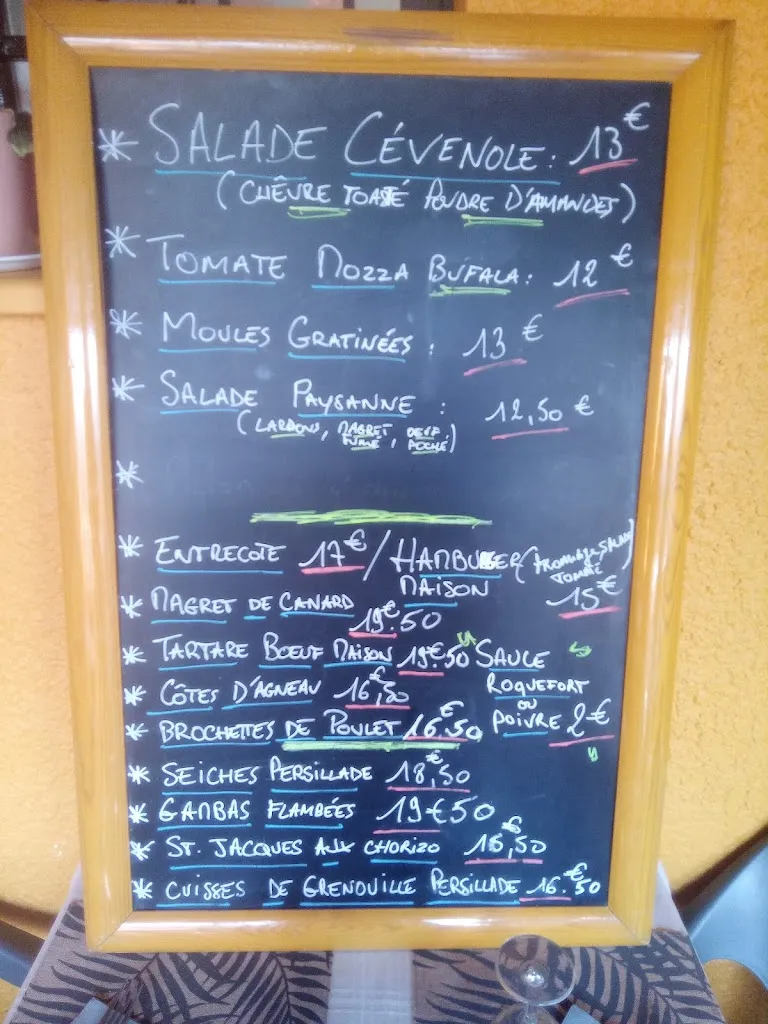 * SALADE CÉVENOLE : 13€
(CHÊVRE TOASTÉ POUDRE D'AMANDES)
* TOMATE MOZZA BUFALA : 12€
* MOULES GRATINÉES : 13€
* SALADE PAYSANNE : 12,50€
(LARDONS, MAGRET FUMÉ, OEUF POCHÉ)
*
* ENTRECOTE 17€ / HAMBURGER (FROMAGE, SALADE
MAISON TOMATE) 15€
* MAGRET DE CANARD 19€.50
* TARTARE BOEUF MAISON 19€50 SAUCE
* CÔTES D'AGNEAU 16€,50 ROQUEFORT
OU
* BROCHETTES DE POULET 16€.50 POIVRE 2€
* SEICHES PERSILLADE 18€,50
* GAMBAS FLAMBÉES 19€50
* ST. JACQUES AUX CHORIZO 16€,50
* CUISSES DE GRENOUILLE PERSILLADE 16.€50